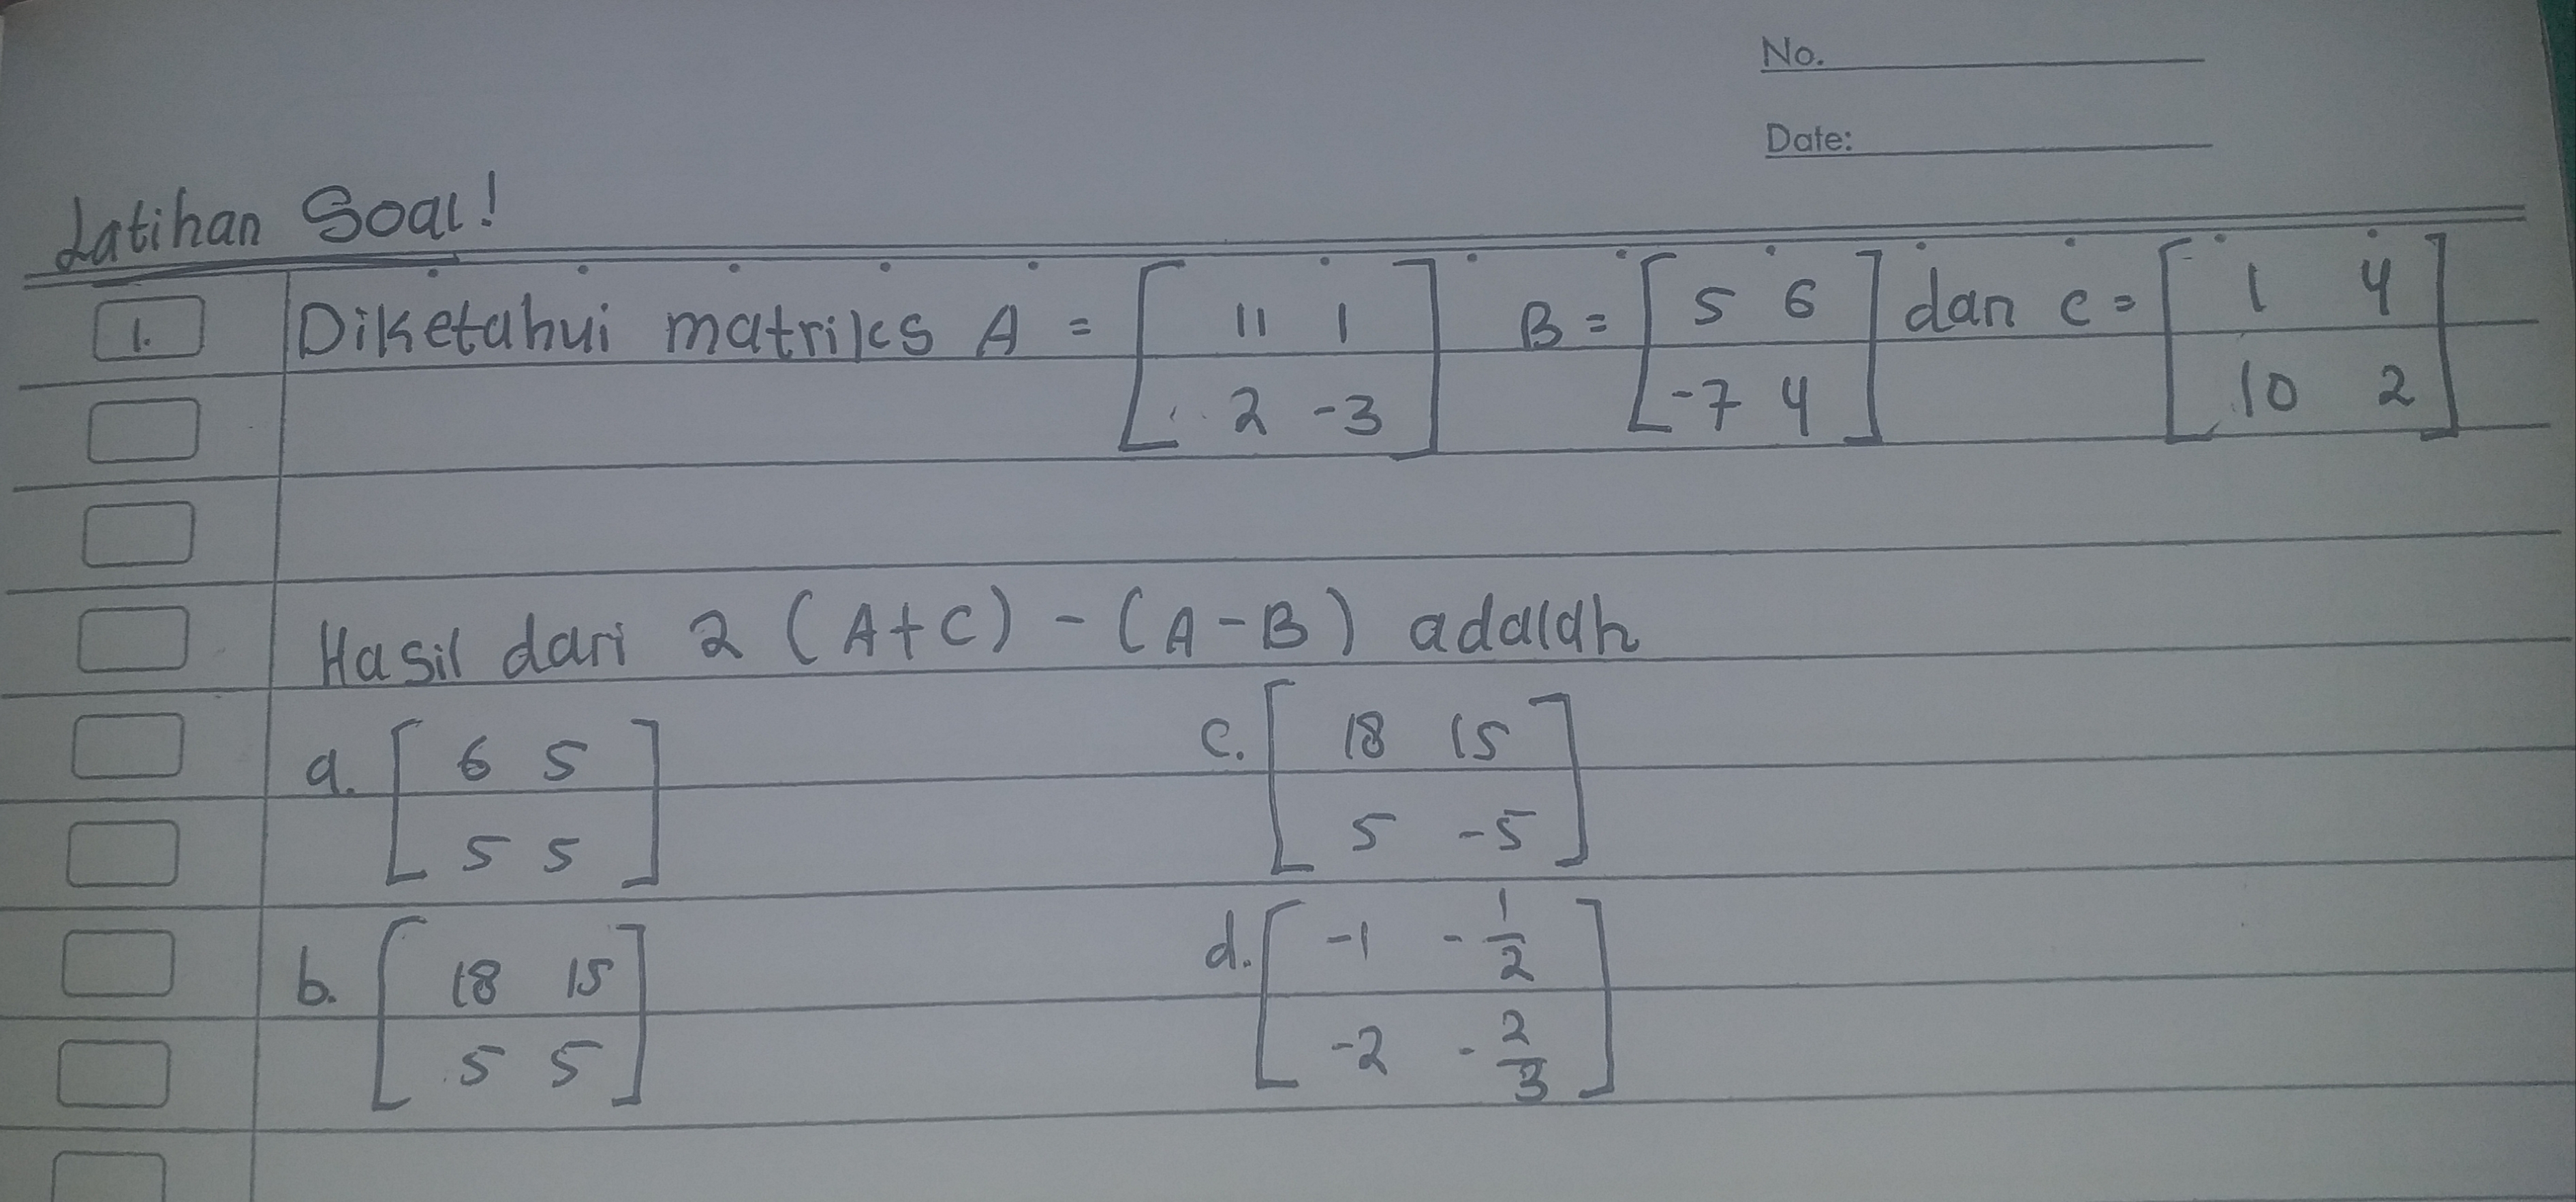 No.
Date:
Latihan Soal!
1. Diketahui matriks A = [ 11 1 ] B = [ 5 6 ] dan C = [ 1 4 ]
[ 2 -3 ] [ -7 4 ] [ 10 2 ]
Hasil dari 2 (A+C) - (A-B) adalah
a. [ 6 5 ] c. [ 18 15 ]
[ 5 5 ] [ 5 -5 ]
b. [ 18 15 ] d. [ -1 -1/2 ]
[ 5 5 ] [ -2 -2/3 ]